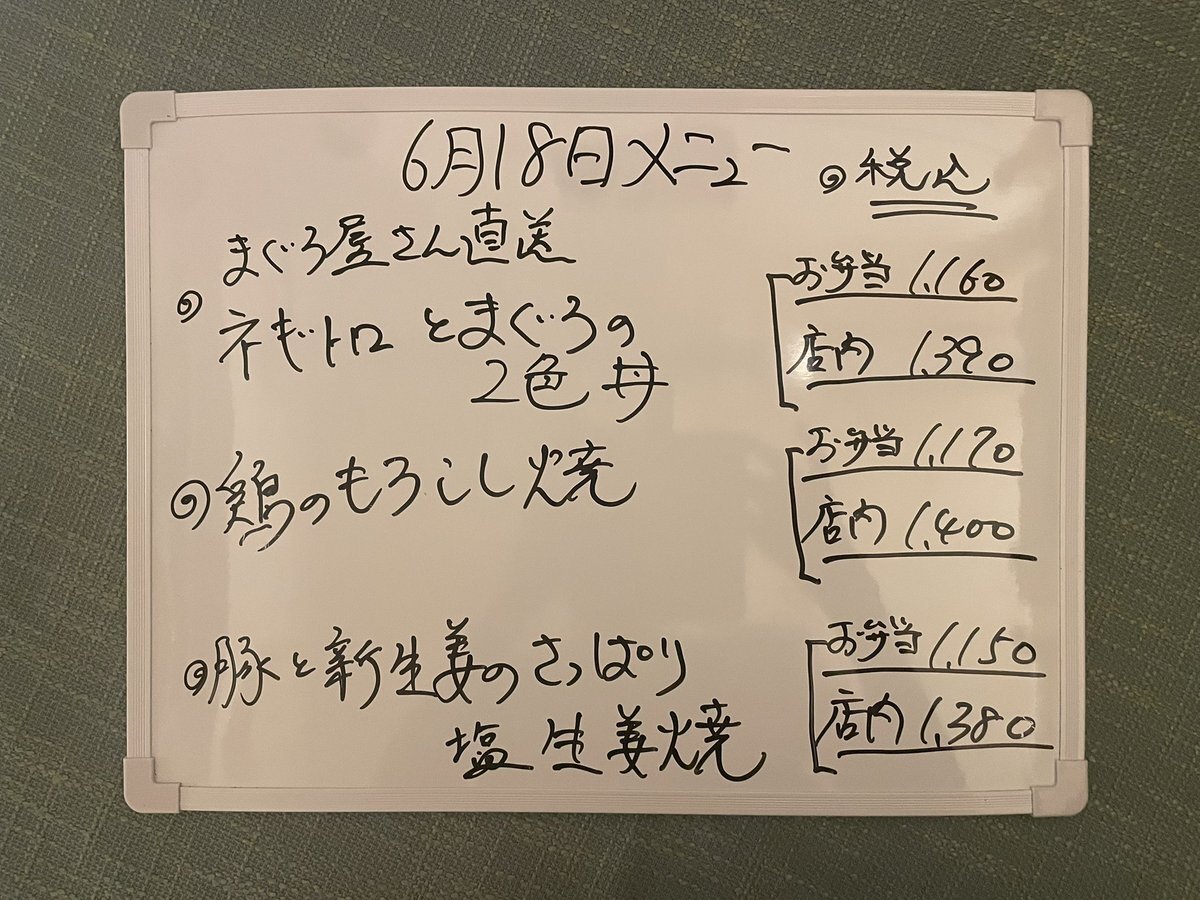 6月18日メニュー
◎税込
まぐろ屋さん直送
◎ネギトロとまぐろの
2色丼
お弁当 1,160
店内 1,390
◎鶏のもろこし焼
お弁当 1,170
店内 1,400
◎豚と新生姜のさっぱり
塩生姜焼
お弁当 1,150
店内 1,380